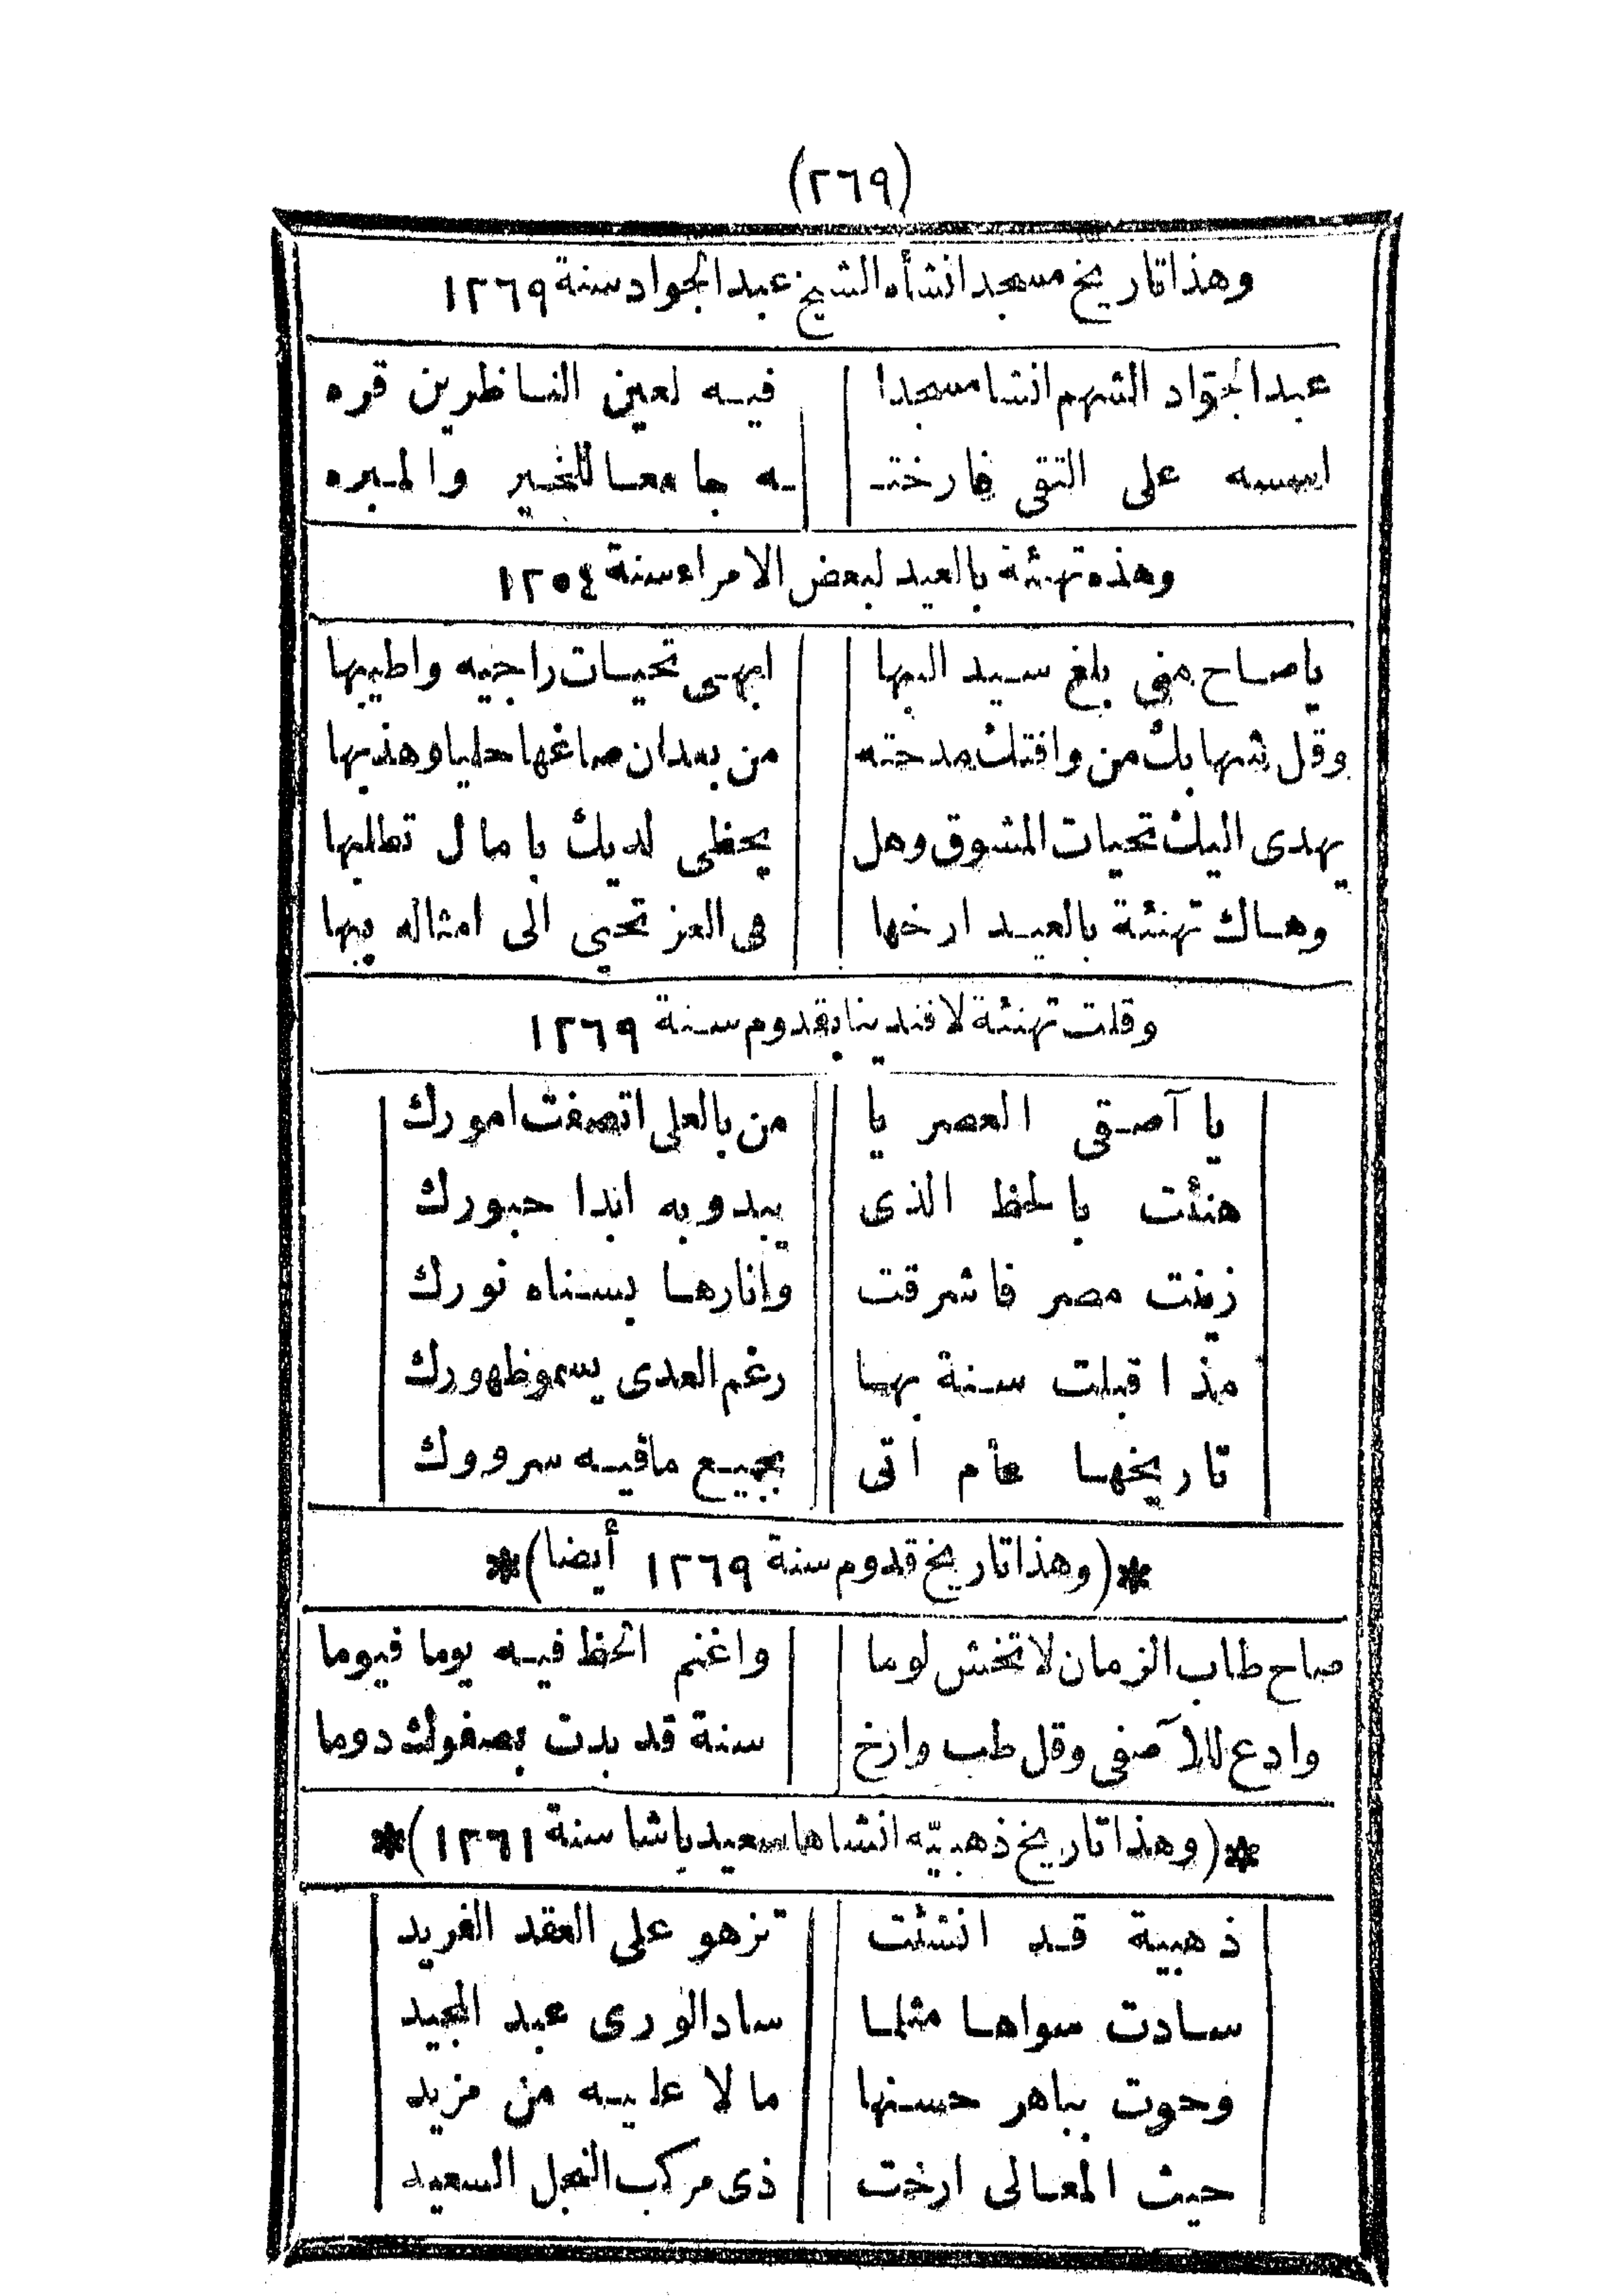 (٢٦٩)
وهذا تاريخ مسجد انشأه الشيخ عبد الجواد سنة ١٢٦٩
عبد الجوّاد الشهم انشا مسجدا فيه لعين الناظرين قره
اسسه على التقى فارختـ ـه جامعا للخير والمبره
وهذه تهنئة بالعيد لبعض الامراء سنة ١٢٥٤
ياصاح منى بلغ سيد البها ابهى تحيات راجيه واطيبها
وقل شهابك من وافتك مدحته من بعد ان صاغها حليا وهذبها
يهدى اليك تحيات المشوق وهل يحظى لديك بامال تطلبها
وهاك تهنئة بالعيد ارخها هى العز تحيى الى امثاله بيها
وقلت تهنئة لافندينا بقدوم سنة ١٢٦٩
يا آصفى العصر يا من بالعلى اتصفت امورك
هنئت بالحظ الذى يبدو به ابدا حبورك
زينت مصر فاشرقت وانارها بسناه نورك
مذ اقبلت سنة بها رغم العدى يسمو ظهورك
تاريخها عام اتى بجميع مافيه سرورك
*(وهذا تاريخ قدوم سنة ١٢٦٩ أيضا)*
صاح طاب الزمان لا تخش لوما واغنم الحظ فيه يوما فيوما
وادع للآصفى وقل طب وارخ سنة قد بدت بصفوك دوما
*(وهذا تاريخ ذهبيّه انشاها سعيد باشا سنة ١٢٦١)*
ذهبية قد انشئت تزهو على العقد الفريد
سادت سواها مثلما ساد الورى عبد المجيد
وحوت بباهر حسنها ما لا عليه من مزيد
حيث المعالى ارخت ذى مركب النجل السعيد